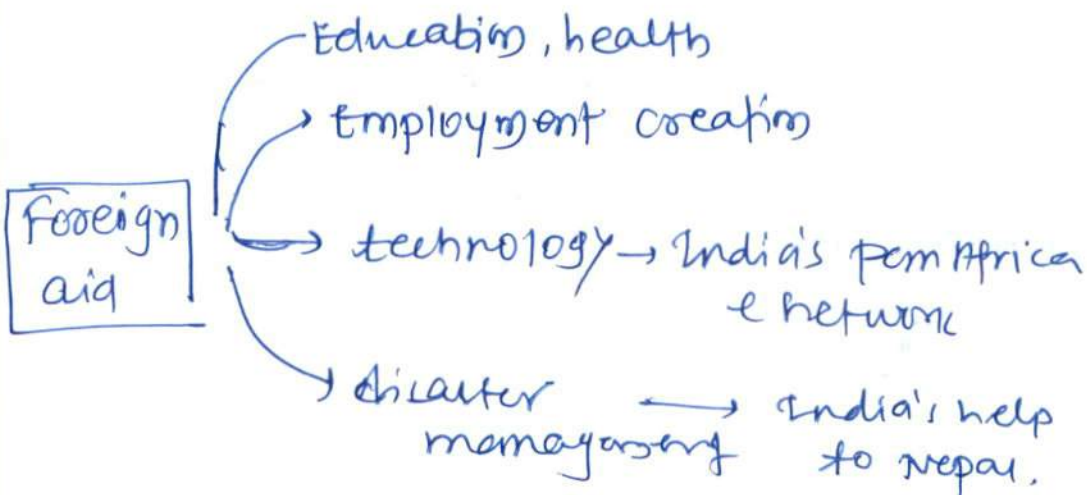 Education, health
Employment creation
Foreign
aid
technology → India's pan Africa
e network
disaster
management → India's help
to Nepal.